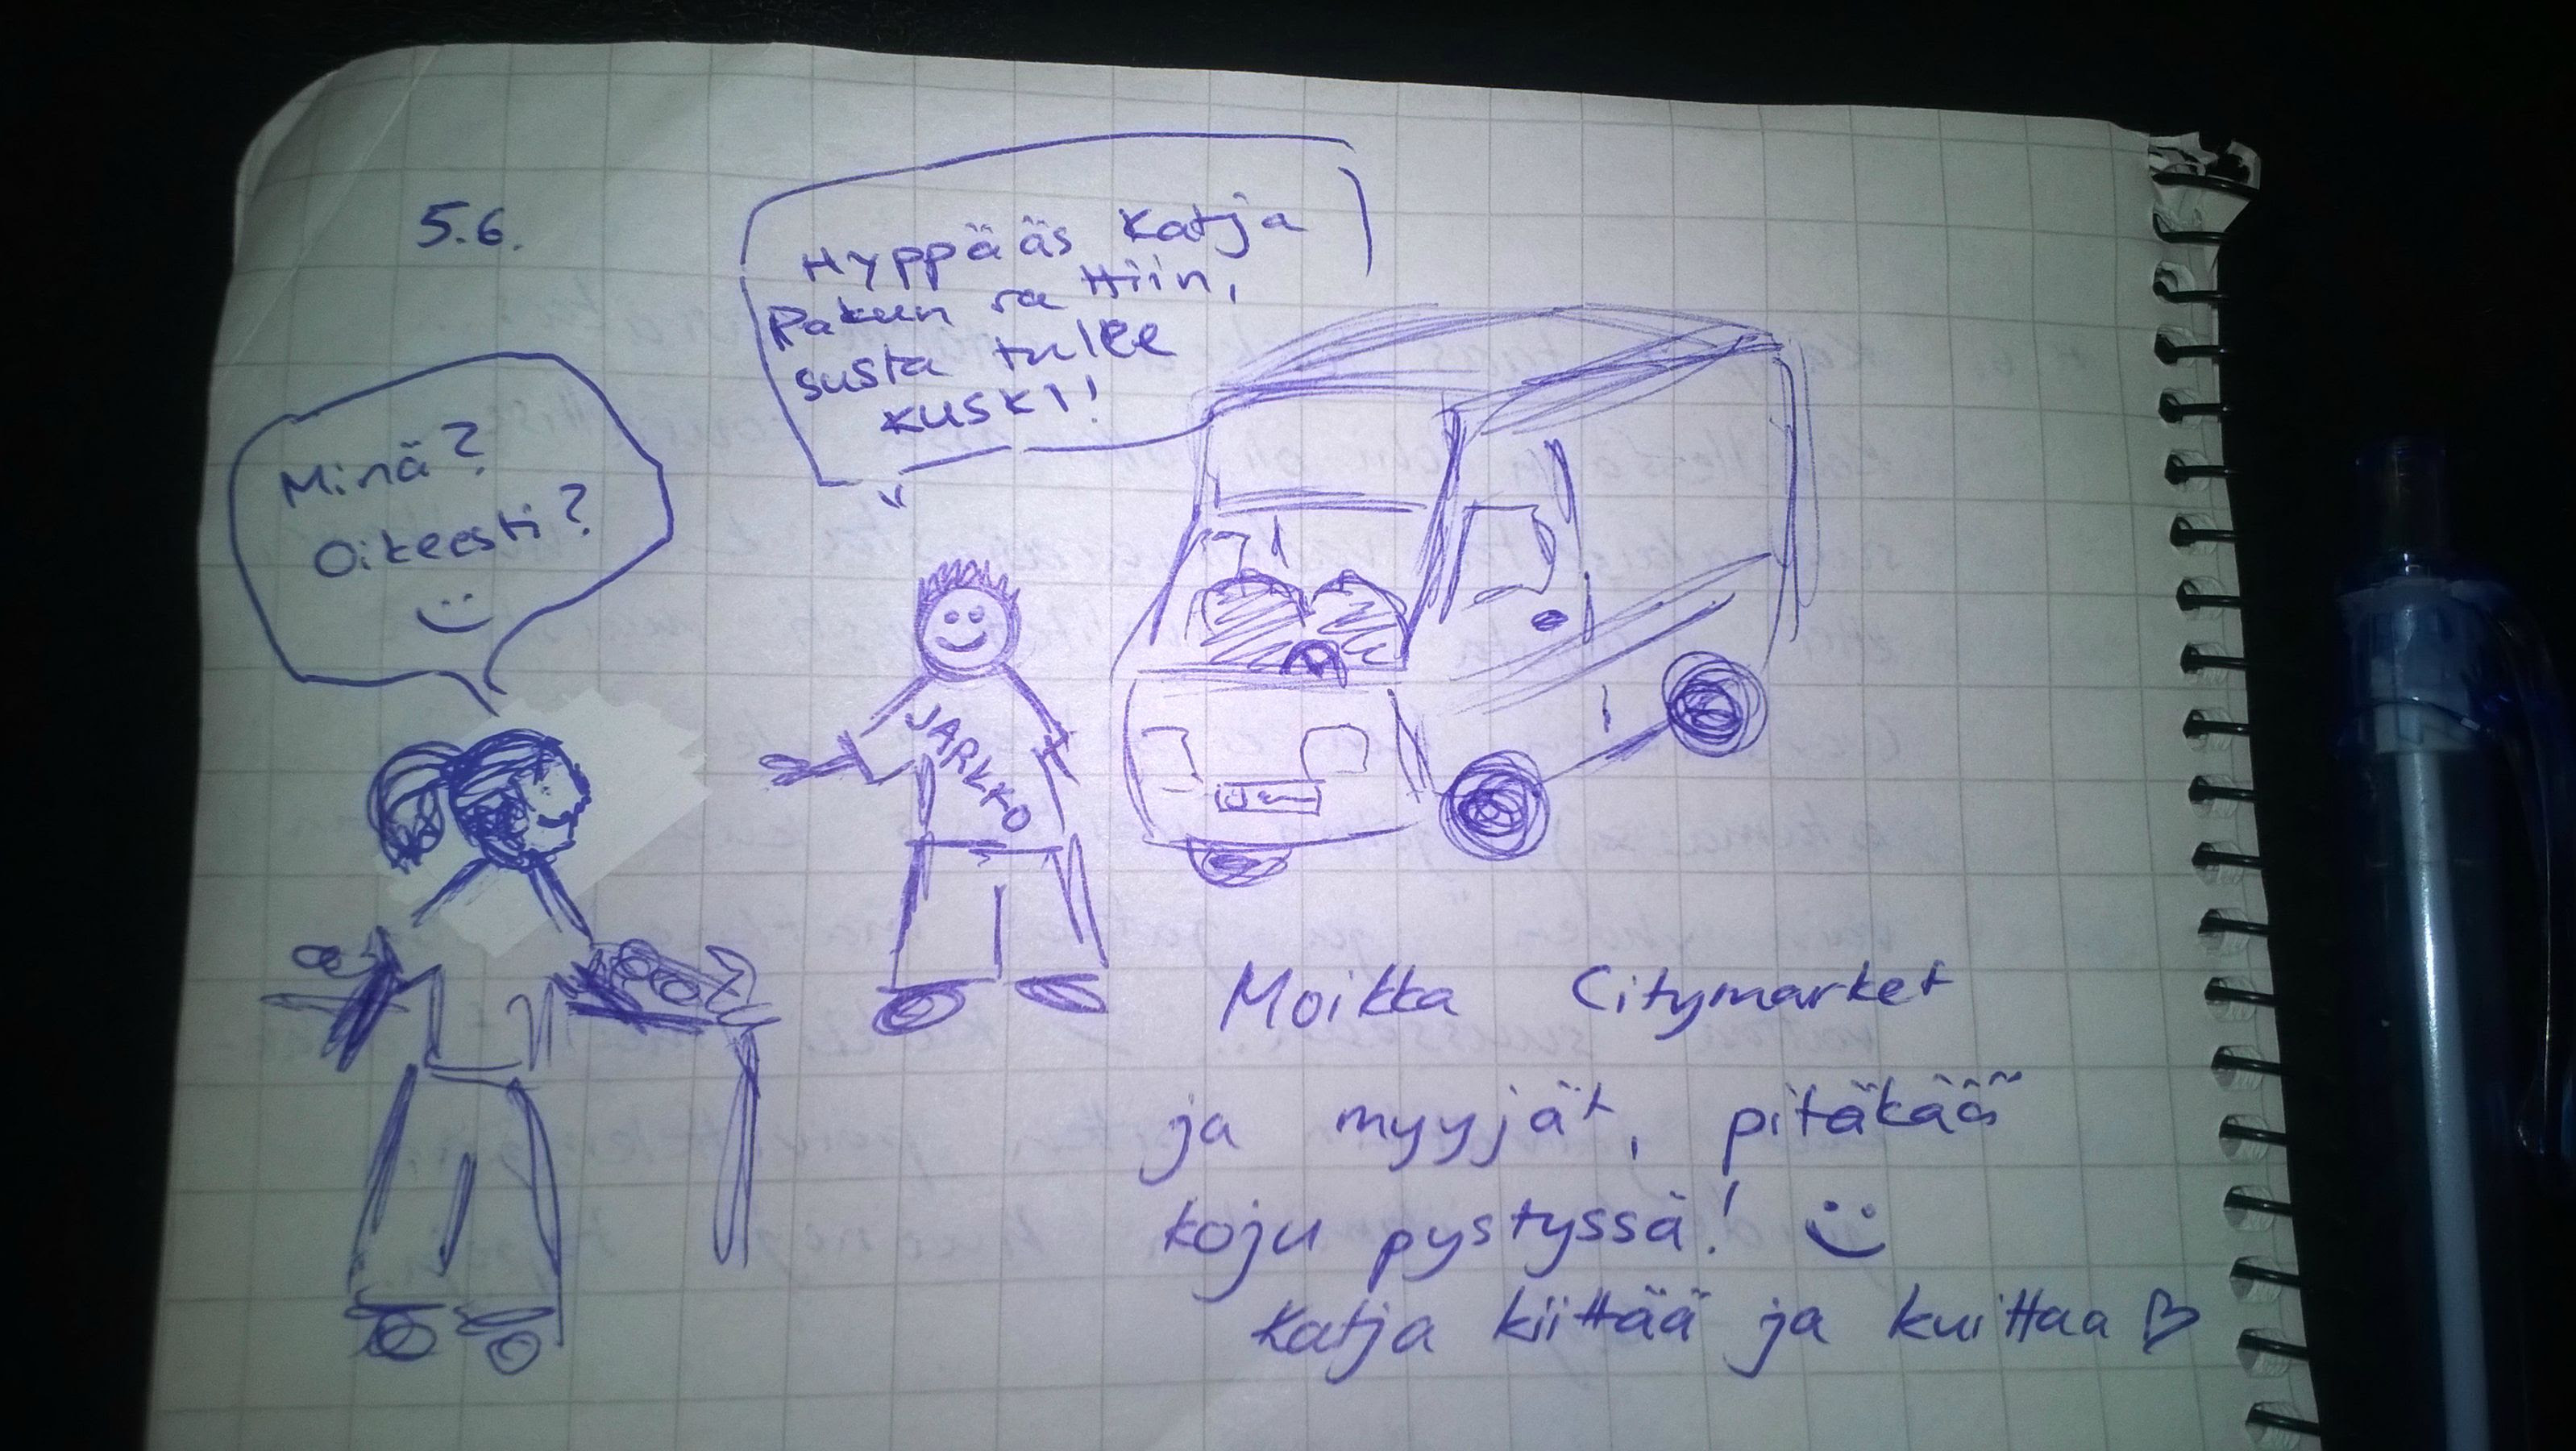 5.6.
Hyppääs Katja
Pakun rattiin,
susta tulee
KUSKI!
Minä?
Oikeesti?
JARKKO
Moikka Citymarket
ja myyjät, pitäkää
koju pystyssä!
Katja kiittää ja kuittaa